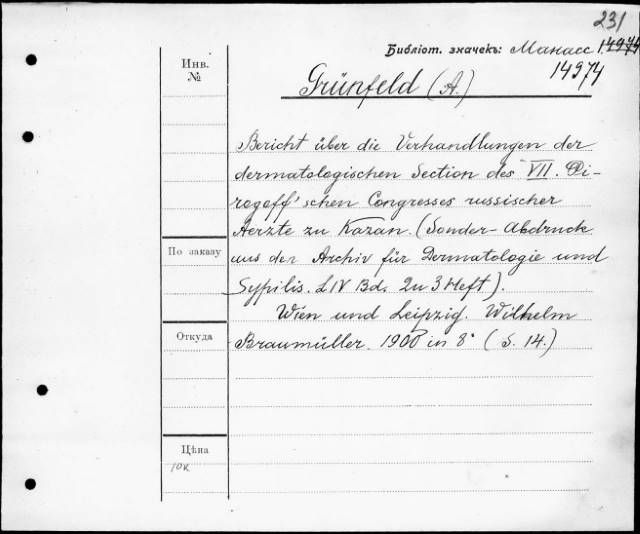 231
Библіот. значекъ: Манасс 14974
14974
Инв.
№
Grünfeld (A.)
Bericht über die Verhandlungen der
dermatologischen Section des VII. Pi-
rogoff'schen Congresses russischer
Aerzte zu Kazan. (Sonder-Abdruck
По заказу
aus der Archiv für Dermatologie und
Sypilis. LIV Bd. 2u 3 Heft).
Wien und Leipzig. Wilhelm
Откуда
Braumüller. 1900 in 8° (S. 14.)
Цѣна
10к